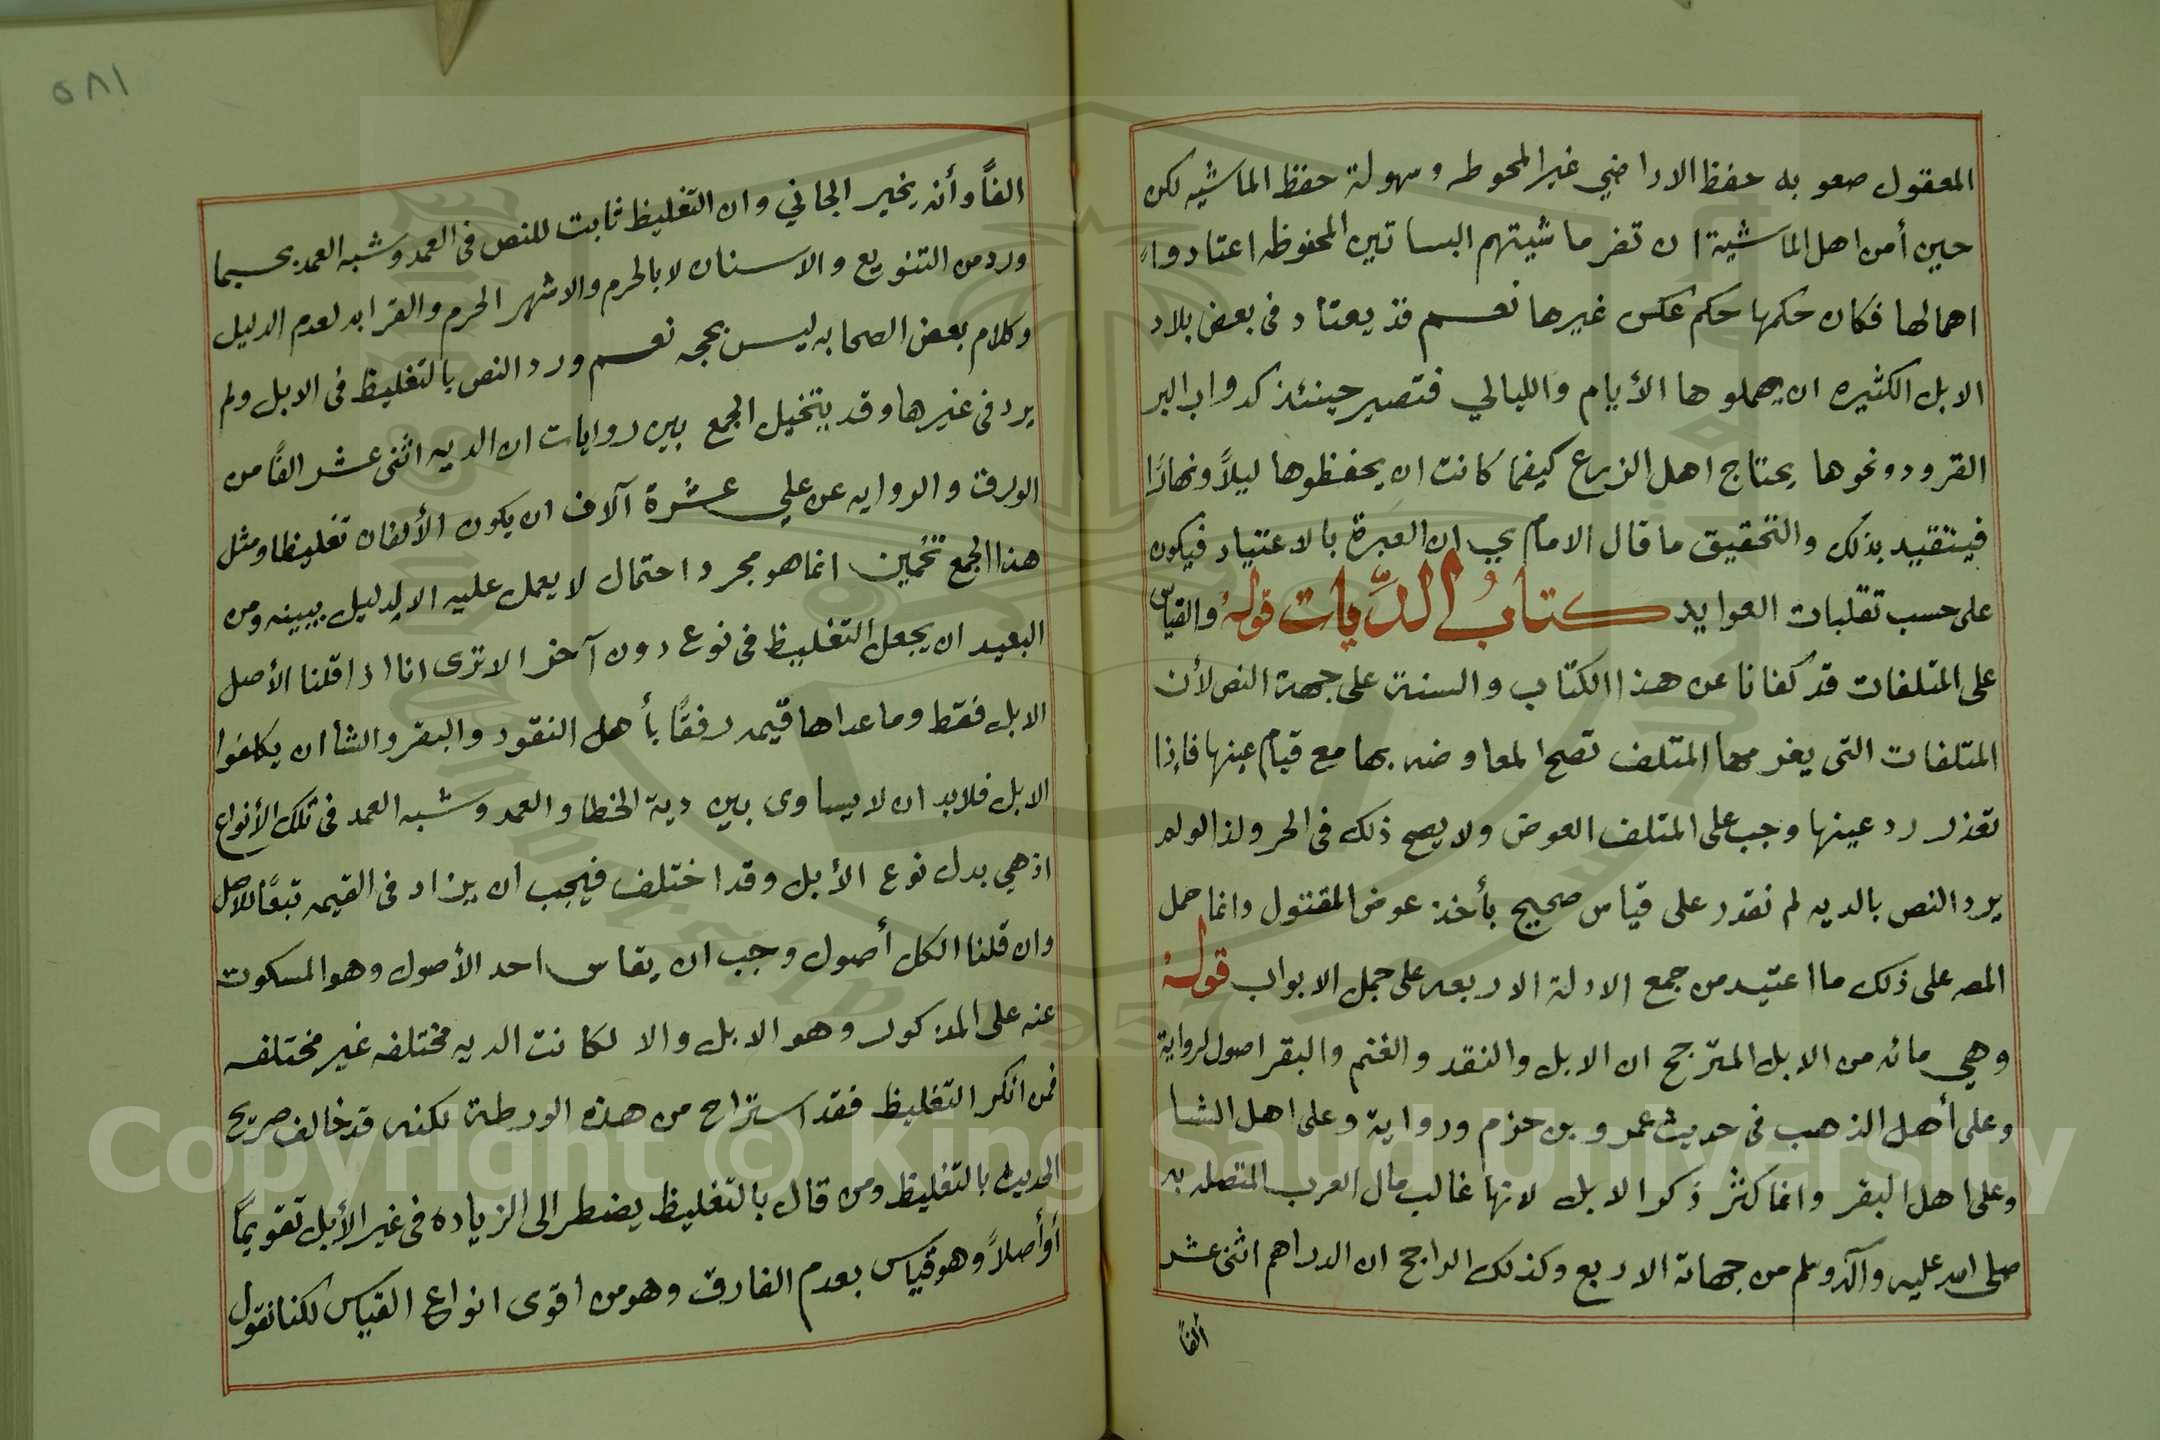 المعقول صعوبه حفظ الاراضي غير المحوطه وسهولة حفظ الماشيه لكن
حين أمن اهل الماشية ان تضر ماشيتهم البساتين المحفوظه اعتادوا
اهمالها فكان حكمها حكم عكس غيرها نعم قد يعتاد في بعض بلاد
الابل الكثيره ان يهملوها الأيام والليالي فتصير حينئذ كدواب البر
القرود ونحوها يحتاج اهل الزرع كيفما كانت ان يحفظوها ليلاً ونهارًا
فيتقيد بذلك والتحقيق ما قال الامام ي ان العبرة بالاعتياد فيكون
على حسب تقلبات العوايد كتابُ الدِّيات قوله والقياس
على المتلفات قد كفانا عن هذا الكتاب والسنة على جهة النص لأن
المتلفات التى يغرمها المتلف تصح المعاوضه بها مع قيام عينها فإذا
تعذر رد عينها وجب على المتلف العوض ولا يصح ذلك فى الحر ولذا لو لم
يرد النص بالديه لم نقدر على قياس صحيح بأخذ عوض المقتول وانما حمل
المصه على ذلك ما اعتيد من جمع الادلة الاربعه على جمل الابواب قوله
وهي مائه من الابل المترجح ان الابل والنقد والغنم والبقر اصول لرواية
وعلى أهل الذهب فى حديث عمرو بن حزم ورواية وعلى اهل الشا
وعلى اهل البقر وانما كثر ذكر الابل لانها غالب مال العرب المتصله به
صلى الله عليه وآله وسلم من جهاته الاربع وكذلك الراجح ان الدراهم اثنى عشر
ألفاً
٥٨١
الفاً وأنه يخير الجاني وان التغليظ ثابت للنص فى العمد وشبه العمد بحسبما
ورد من التنويع والاسنان لا بالحرم والاشهر الحرم والقرابه لعدم الدليل
وكلام بعض الصحابه ليس بحجه نعم ورد النص بالتغليظ فى الابل ولم
يرد فى غيرها وقد يتخيل الجمع بين روايات ان الديه اثنى عشر الفاً من
الورق والروايه عن علي عشرة آلاف ان يكون الألفان تغليظا ومثل
هذا الجمع تخمين انما هو مجرد احتمال لا يعمل عليه الا لدليل يبينه ومن
البعيد ان يجعل التغليظ فى نوع دون آخر الا ترى انا اذا قلنا الأصل
الابل فقط وما عداها قيمه رفقًا بأهل النقود والبقر والشا ان يكلفوا
الابل فلا بد ان لا يساوى بين دية الخطا والعمد وشبه العمد فى تلك الأنواع
اذ هي بدل نوع الأبل وقد اختلف فيجب ان يزاد فى القيمه تبعًا للاصل
وان قلنا الكل أصول وجب ان يقاس احد الأصول وهو المسكوت
عنه على المذكور وهو الابل والا لكانت الديه مختلفه غير مختلفه
فمن انكر التغليظ فقد استراح من هذه الورطة لكنه قد خالف صريح
الحديث بالتغليظ ومن قال بالتغليظ يضطر الى الزياده فى غير الأبل تقويمًا
أو أصلاً وهو قياس بعدم الفارق وهو من اقوى انواع القياس لكنا نقول
Copyright © King Saud University